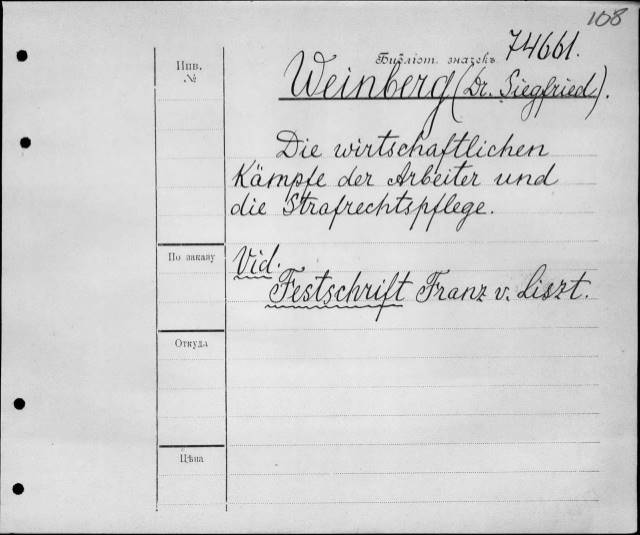 108
Библіот. значекъ 74661.
Инв.
№
Weinberg (Dr. Siegfried).
Die wirtschaftlichen
Kämpfe der Arbeiter und
die Strafrechtspflege.
По заказу
Vid.
Festschrift Franz v. Liszt.
Откуда
Цѣна